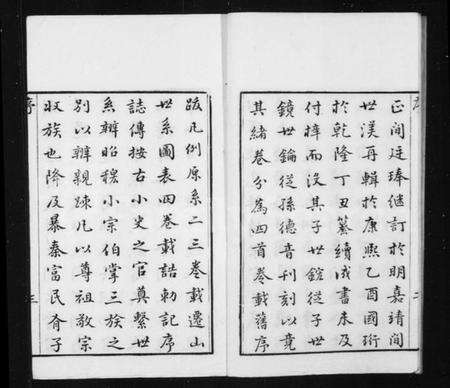 正間廷琫継訂於明嘉靖間
世渼再輯於康熙乙酉國珩
於乾隆丁丑纂續成書未及
付梓而沒其子世鎧從子世
鏡世錀從孫德音刊刻以竟
其緒卷分為四首卷載舊序
跋凡例原系二三卷載遷山
世系圖表四卷載誥勅記序
誌傳按古小史之官奠繫世
系辨昭穆小宗伯掌三族之
別以辨親踈凡以尊祖敬宗
収族也降及暴秦富民有子
序
三